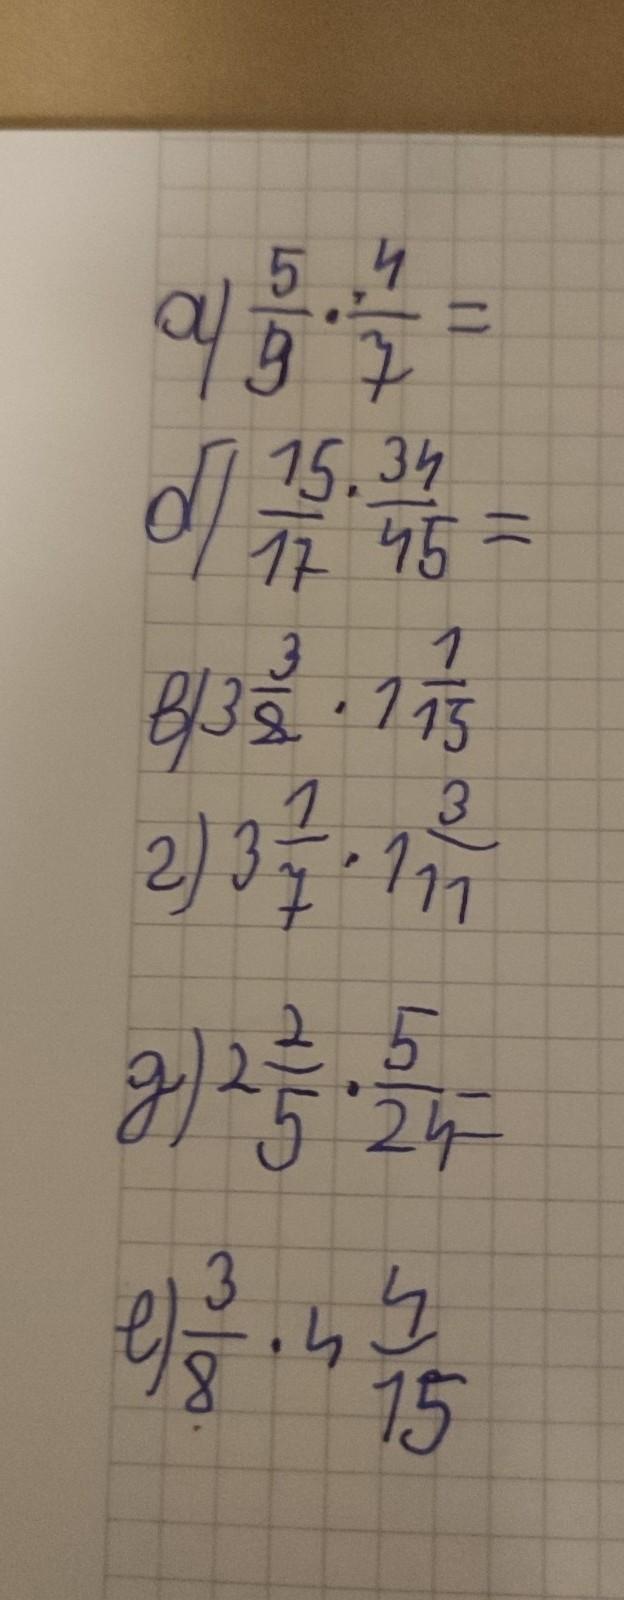 а) 5/9 · 4/7 =
б) 15/17 · 34/45 =
в) 3 3/8 · 1 1/15
г) 3 1/7 · 1 3/11
д) 2 2/5 · 5/24 =
е) 3/8 · 4 4/15